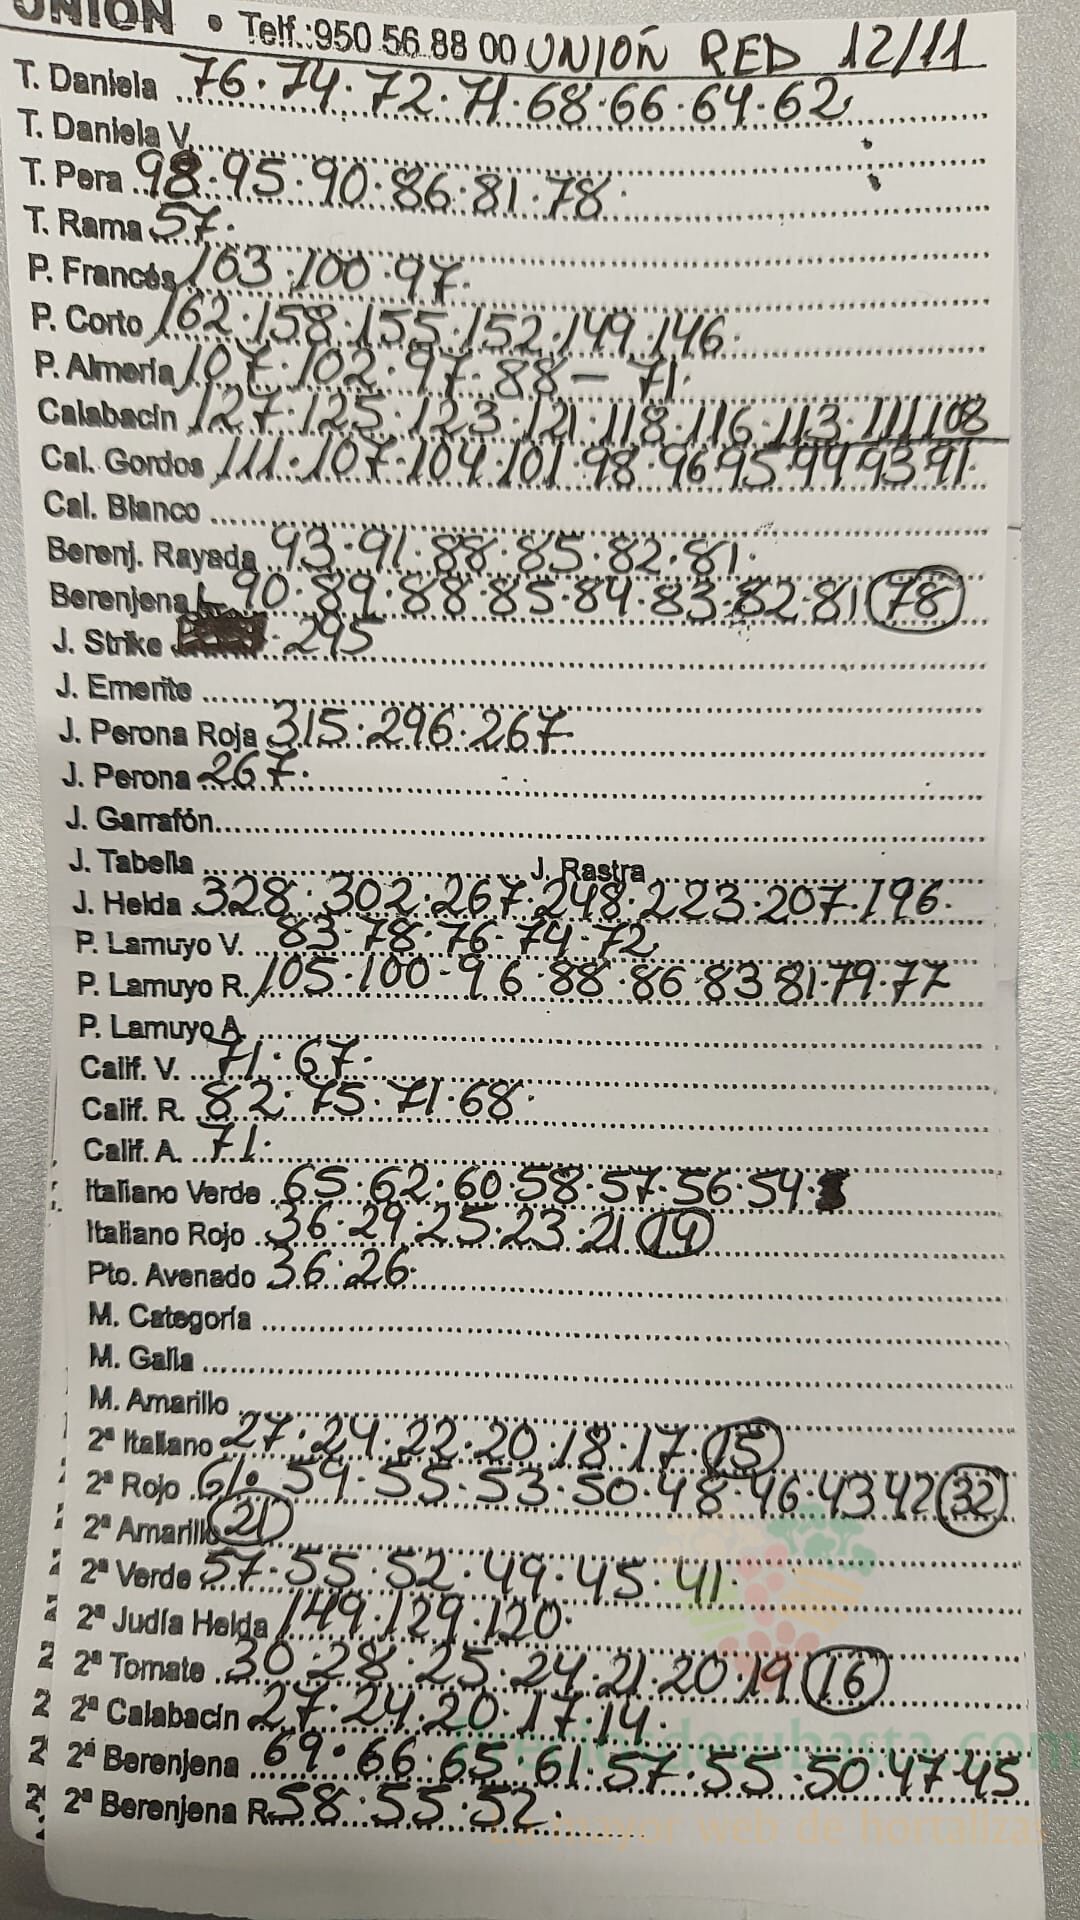 UNION • Telf.:950 56 88 00 UNIOÑ RED 12/11
T. Daniela 76.74.72.71.68.66.64.62
T. Daniela V.
T. Pera 98.95.90.86.81.78
T. Rama 57.
P. Francés 163.100.97.
P. Corto 162.158.155.152.149.146
P. Almería 107.102.97.88-71.
Calabacín 127.125.123.121.118.116.113.111 108
Cal. Gordos 111.107.104.101.98.96.95.94.93.91.
Cal. Blanco
Berenj. Rayada 93.91.88.85.82.81.
Berenjena L 90.89.88.85.84.83.82.81 78
J. Strike 295
J. Emerite
J. Perona Roja 315.296.267
J. Perona 267.
J. Garrafón
J. Tabella J. Rastra
J. Helda 328.302.267.248.223.207.196.
P. Lamuyo V. 83.78.76.74.72
P. Lamuyo R. 105.100-96.88.86.83 81.79.77
P. Lamuyo A.
Calif. V. 71.67.
Calif. R. 82.75.71.68.
Calif. A. 71.
Italiano Verde 65.62.60.58.57.56.54.
Italiano Rojo 36.29.25.23.21 19
Pto. Avenado 36.26.
M. Categoría
M. Galia
M. Amarillo
2ª Italiano 27.24.22.20.18.17.15
2ª Rojo 61.59.55.53.50.48.46.43 42 32
2ª Amarillo 21
2ª Verde 57.55.52.49.45.41.
2ª Judía Helda 149.129.120.
2ª Tomate 30.28.25.24.21.20.19 16
2ª Calabacín 27.24.20.17.14.
Preciosdesubasta.com
2ª Berenjena 69.66.65.61.57.55.50.47.45
2ª Berenjena R. 58.55.52.
La mayor web de hortalizas